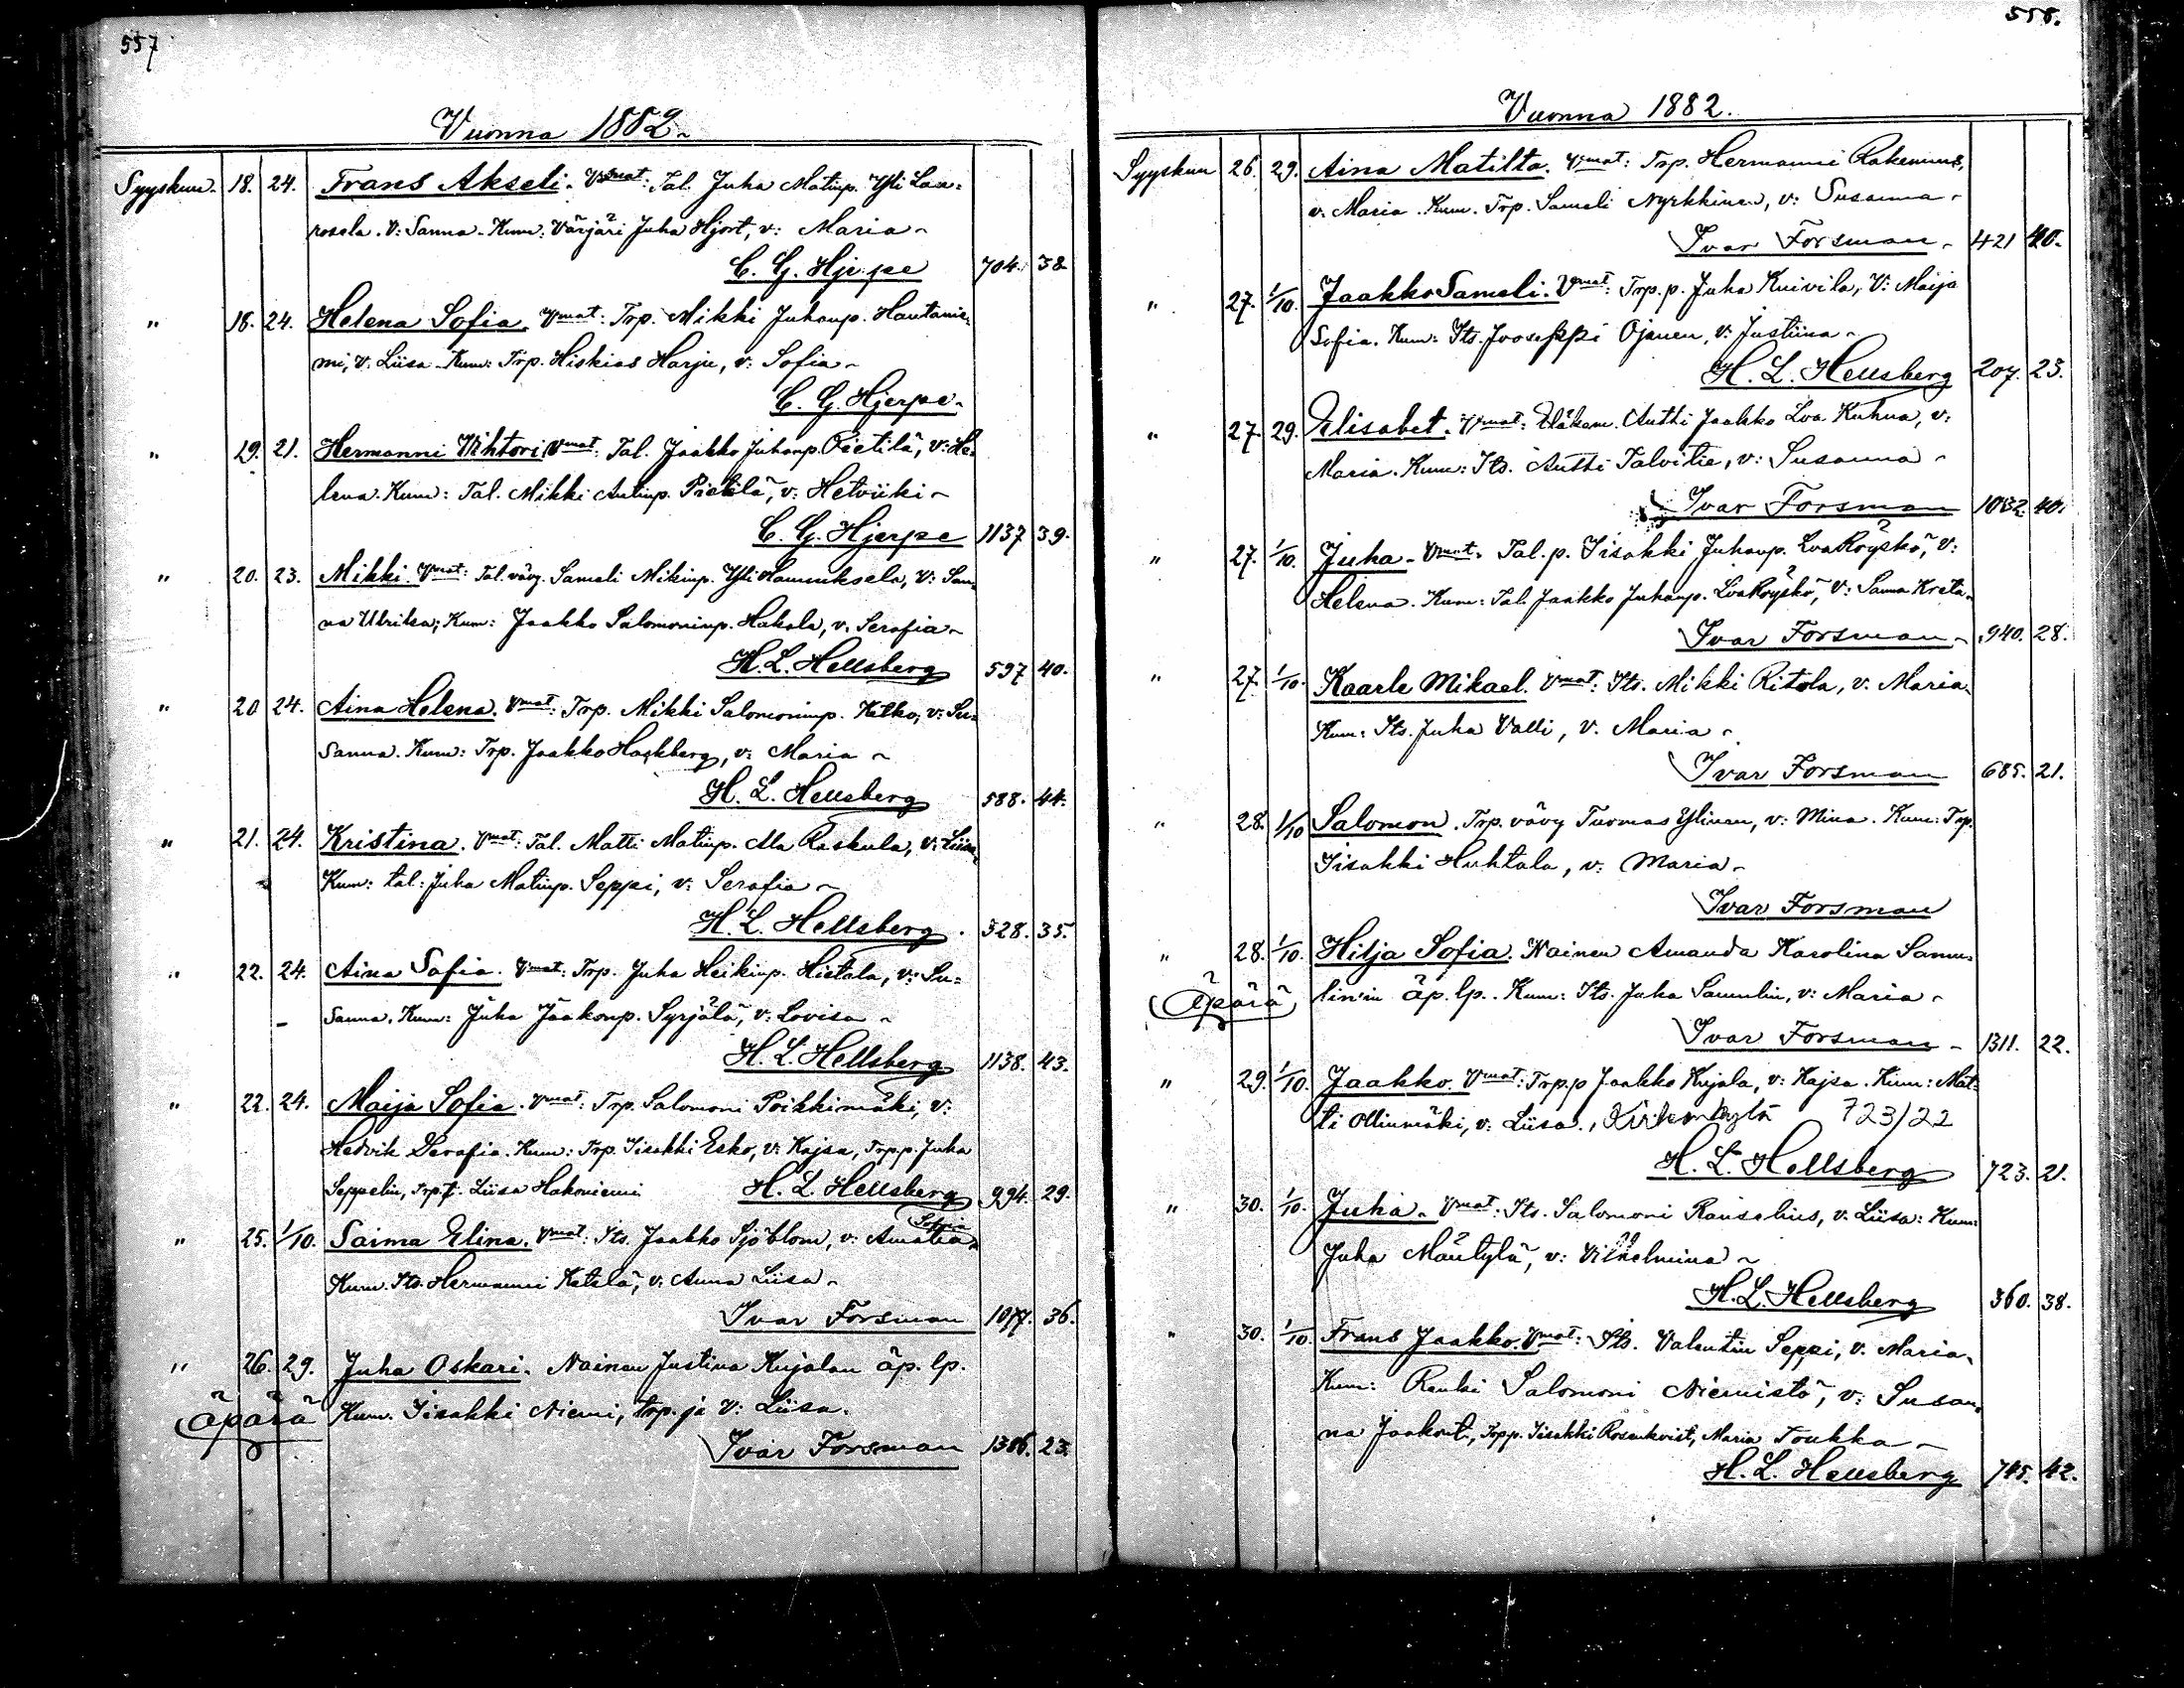 557
Vuonna 1882.
Syyskuu. 18. 24. Frans Akseli. Vmat: Tal. Juha Matinp. Yli Lau=
rosela. V: Sanna. Kum: Värjäri Juha Hjort, v: Maria
C. G. Hjerpe 704. 38
" 18. 24. Helena Sofia. Vmat: Trp. Mikki Juhanp. Hautanie=
mi, v: Liisa. Kum: Trp. Hiskias Harju, v: Sofia
C. G. Hjerpe
" 19. 21. Hermanni Vihtori Vmat: Tal. Jaakko Juhanp. Pietilä, v: He=
lena. Kum: Tal. Mikki Antinp. Pietilä, v: Hetviiki
C. G. Hjerpe 1137 39.
" 20. 23. Mikki. Vmat: Tal. vävy Sameli Mikinp. Yli Hannuksela, v: San=
na Ulriika; Kum: Jaakko Salomoninp. Hakala, v. Serafia
H. L. Hellsberg 597 40.
" 20 24. Aina Helena. Vmat: Trp. Mikki Salomoninp. Ketko, v: Su=
sanna. Kum: Trp. Jaakko Hackberg, v: Maria
H. L. Hellsberg 588. 44.
" 21. 24. Kristina. Vmat: Tal. Matti Matinp. Ala Raskula, v: Liisa
Kum: tal: Juha Matinp. Seppi, v: Serafia
H. L. Hellsberg. 328. 35.
" 22. 24. Aina Sofia. Vmat: Trp. Juha Heikinp. Hietala, v: Su=
sanna. Kum: Juha Jaakonp. Syrjälä, v: Lovisa
H. L. Hellsberg 1138. 43.
" 22. 24. Maija Sofia. Vmat: Trp. Salomoni Poikkimäki, v:
Hedvik Serafia. Kum: Trp. Iisakki Esko, v: Kajsa, Trp.p. Juha
Seppelin, Trp.t. Liisa Hakoniemi H. L. Hellsberg 994. 29.
Sofia
" 25. 1/10. Saima Elina. Vmat: Its. Jaakko Sjöblom, v: Amalia
Kum. Its. Hermanni Ketelä, v: Anna Liisa
Ivar Forsman 1077. 36.
" 26. 29. Juha Oskari. Nainen Justina Kujalan äp. lp.
äpärä Kum. Iisakki Niemi, trp. ja v: Liisa.
Ivar Forsman 1306. 23.
558.
Vuonna 1882.
Syyskuu 26. 29. Aina Matilta. Vmat: Trp. Hermanni Rakennus,
v. Maria. Kum. Trp. Sameli Nyrkkinen, v: Susanna
Ivar Forsman 421 40.
" 27. 1/10. Jaakko Sameli. Vmat: Trp.p. Juha Kuivila, V: Maija
Sofia. Kum: Its. Jooseppi Ojanen, v: Justiina
H. L. Hellsberg 207. 23.
" 27. 29. Elisabet. Vmat: Eläkem. Antti Jaakko Lva Kuhna, v:
Maria. Kum: Its. Antti Talvitie, v: Susanna
Ivar Forsman 1032 40.
" 27. 1/10. Juha. Vmat: Tal.p. Iisakki Juhanp. Lva Röyskö, v:
Helena. Kum: Tal. Jaakko Juhanp. Lva Röyskö, v: Sanna Kreta
Ivar Forsman 940. 28.
" 27. 1/10. Kaarle Mikael. Vmat: Its. Mikki Ritola, v. Maria
Kum: Its. Juha Valli, v. Maria
Ivar Forsman 685. 21.
" 28. 1/10 Salomon. Trp. vävy Tuomas Ylinen, v: Mina. Kum: Trp.
Iisakki Huhtala, v: Maria
Ivar Forsman
" 28. 1/10. Hilja Sofia. Nainen Amanda Karolina Samu=
äpärä lin'in äp. lp. Kum: Its. Juha Samulin, v: Maria
Ivar Forsman 1311. 22.
" 29. 1/10. Jaakko. Vmat: Trp.p Jaakko Kujala, v: Kajsa. Kum: Mat=
ti Ollinmäki, v: Liisa., Kirkonkylä 723/22
H. L. Hellsberg 723. 21.
" 30. 1/10. Juha. Vmat: Its. Salomoni Rauselius, v. Liisa: Kum:
Juha Mäntylä, v: Vilhelmina
H. L. Hellsberg 360. 38.
" 30. 1/10. Frans Jaakko. Vmat: Its. Valentin Seppi, v. Maria
Kum: Renki Salomoni Niemistö, v: Susan=
na Jaakont., Trp.p. Iisakki Rosenkvist, Maria Toukka
H. L. Hellsberg 745. 42.